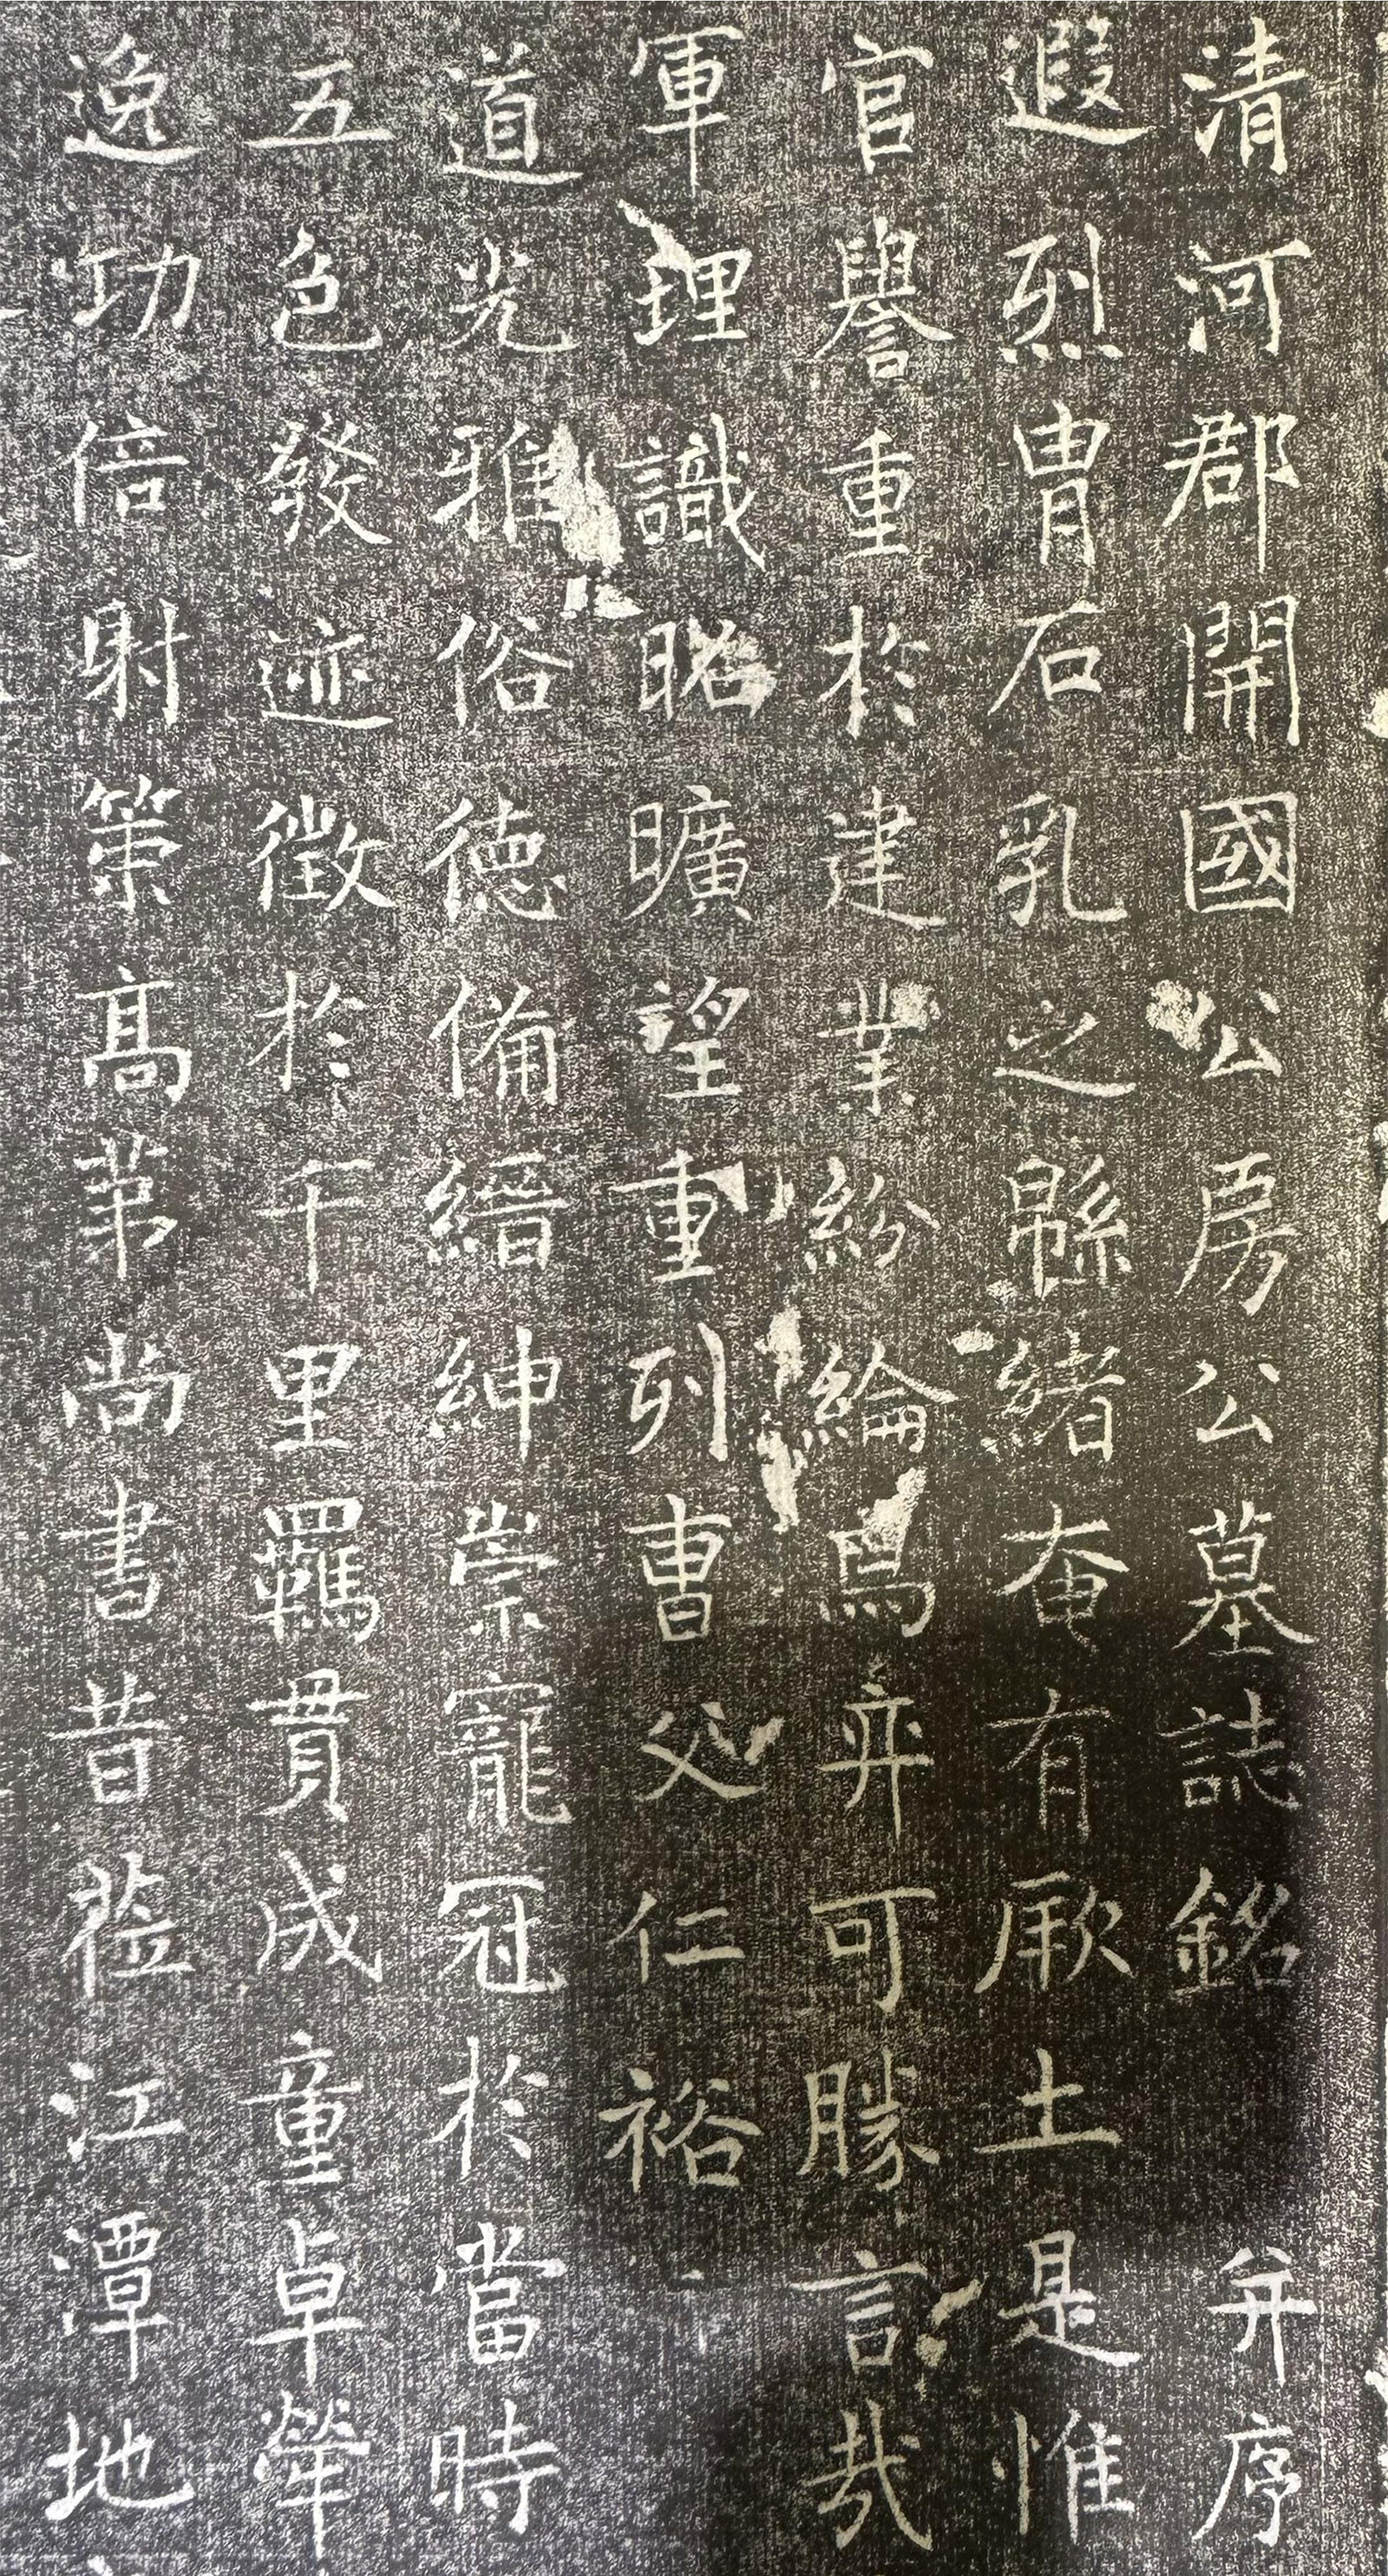 清河郡開國公房公墓誌銘 并序
遐烈胄石乳之緜緒奄有厥土是惟
官譽重於建業紛綸焉弈可勝言哉
軍理識昭曠望重列曺父仁裕
道光雅俗德備縉紳崇寵冠於當時
五色發迹徵於千里羈貫成童卓犖
逸功倍射策高苐尚書昔蒞江潭地